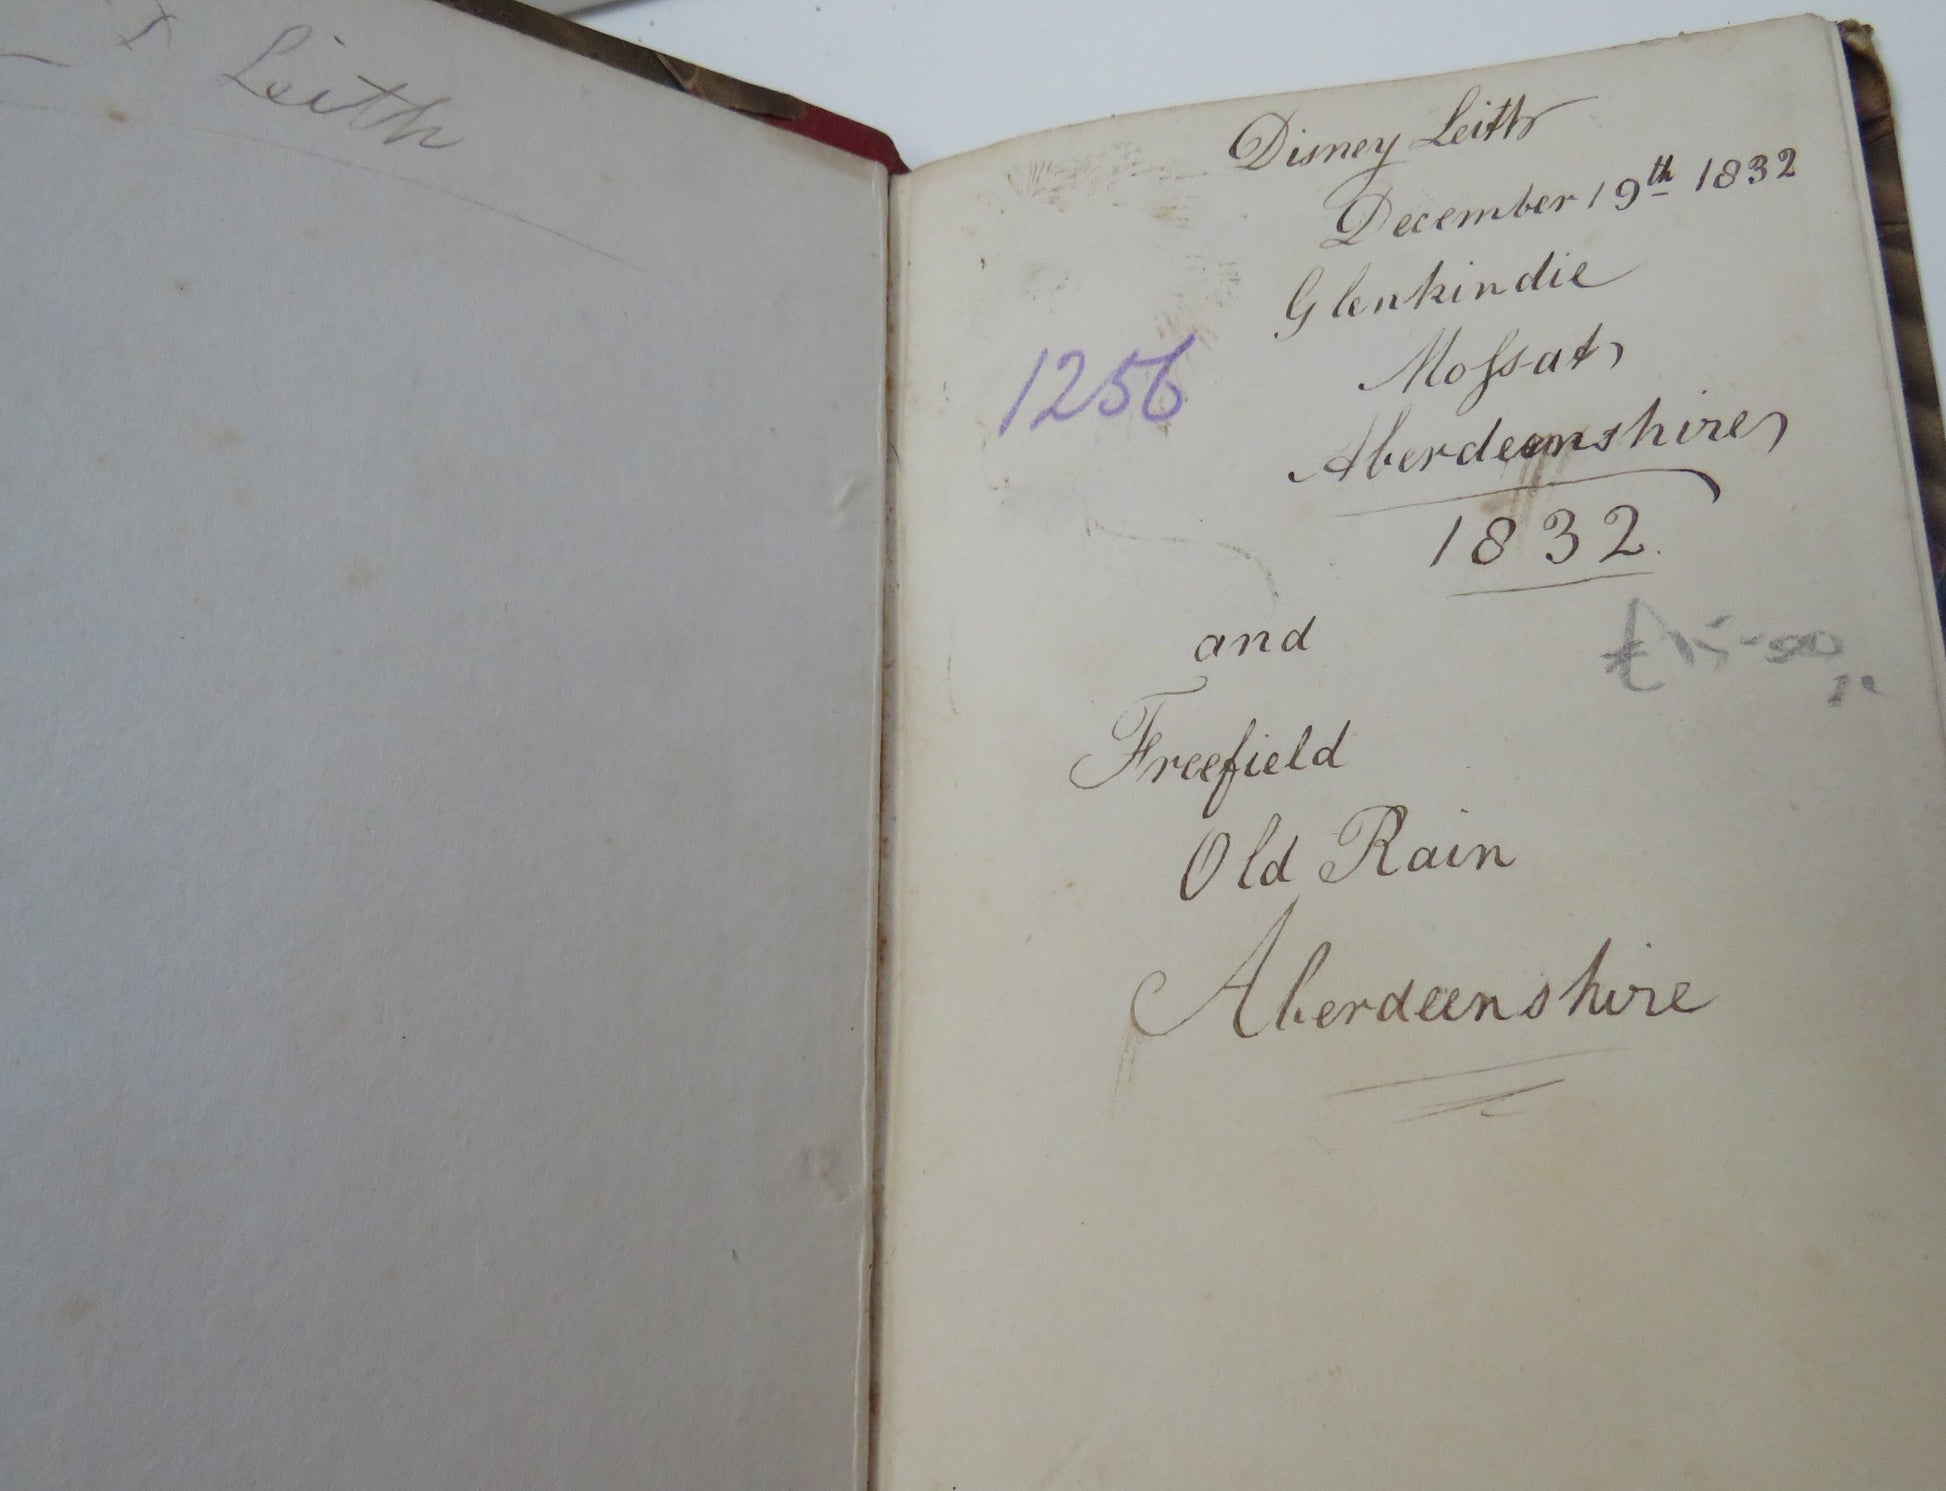 Leith
Disney Leith
December 19th 1832
Glenkindie
Mossat
Aberdeenshire
1832
1256
and
Freefield
Old Rain
Aberdeenshire